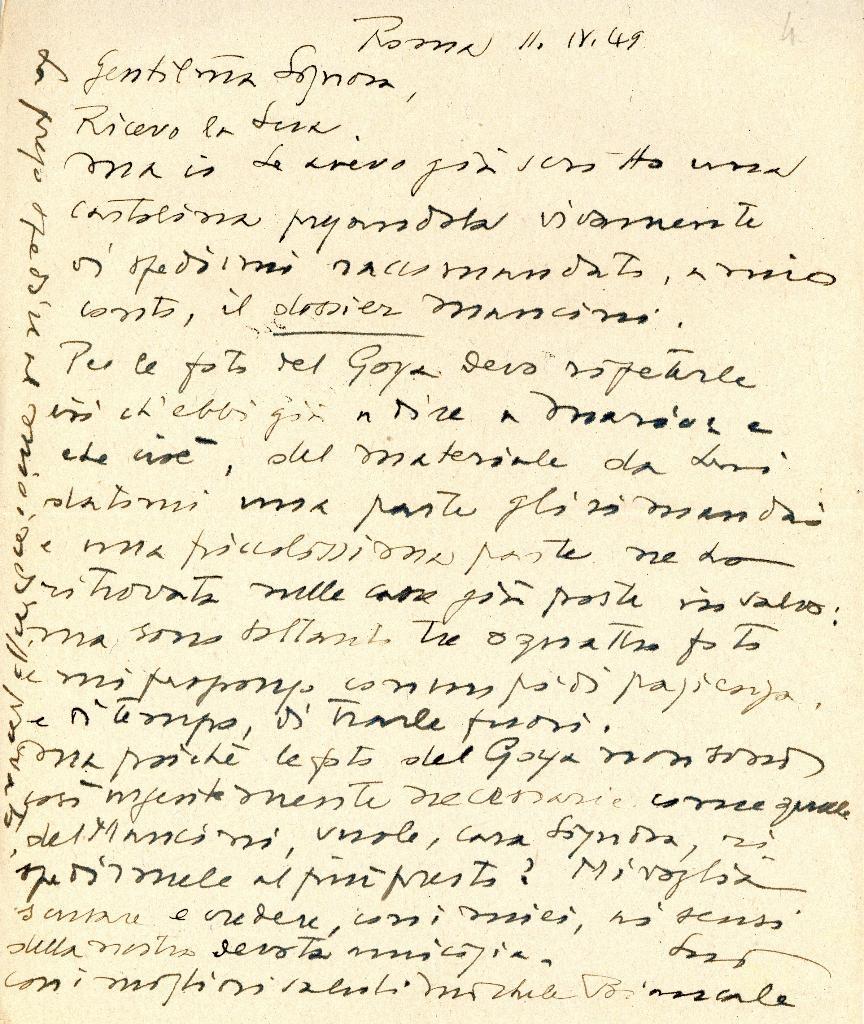 Roma 11. IV. 49
Gentilma Signora,
Ricevo la Sua.
Ma io Le avevo già scritto una
cartolina pregandola vivamente
di spedirmi raccomandato, a mio
conto, il dossier Mancini.
Per le foto del Goya devo ripeterle
ciò ch'ebbi già a dire a e
che cioè, del materiale da Lui
datomi una parte gli rimandai
e una piccolissima parte ne ho
ritrovata nelle casse già poste in salvo:
ma sono soltanto tre o quattro foto
e mi propongo con un po' di pazienza,
e di tempo, di trarle fuori.
Ma poiché le foto del Goya non sono
così urgentemente necessarie come quelle
del Mancini, vuole, cara Signora,
spedirmele al più presto? Mi voglia
scusare e credere, con i miei, ai sensi
della nostra devota amicizia. Suo
con i migliori saluti Michele Biancale
La prego spedire